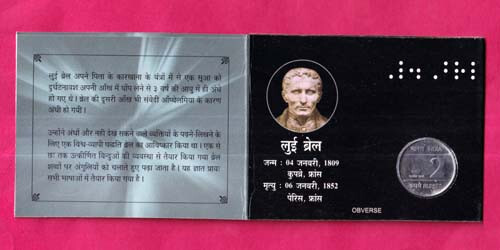 लुई ब्रेल अपने पिता के कारखाना के यंत्रों में से एक सूआ को
दुर्घटनावश अपनी आँख में घोंप लेने से ३ वर्ष की आयु में ही अंधे
हो गए थे। ब्रेल की दूसरी आँख भी संवेदी ऑफ्थेलमिया के कारण
अंधी हो गयी।
उन्होंने अंधों और नहीं देख सकने वाले व्यक्तियों के पढ़ने-लिखने के
लिए एक विश्व-व्यापी पद्धति ब्रेल का आविष्कार किया था। एक से
छः तक उत्कीर्णित बिन्दुओं की व्यवस्था से तैयार किया गया ब्रेल
शब्दों पर अंगुलियों को चलाते हुए पढ़ा जाता है। यह ज्ञात प्रायः
सभी भाषाओं में तैयार किया गया है।
लुई ब्रेल
जन्म : 04 जनवरी, 1809
कुपव्रे, फ्रांस
मृत्यु : 06 जनवरी, 1852
पेरिस, फ्रांस
भारत INDIA
2
रुपये RUPEES
OBVERSE